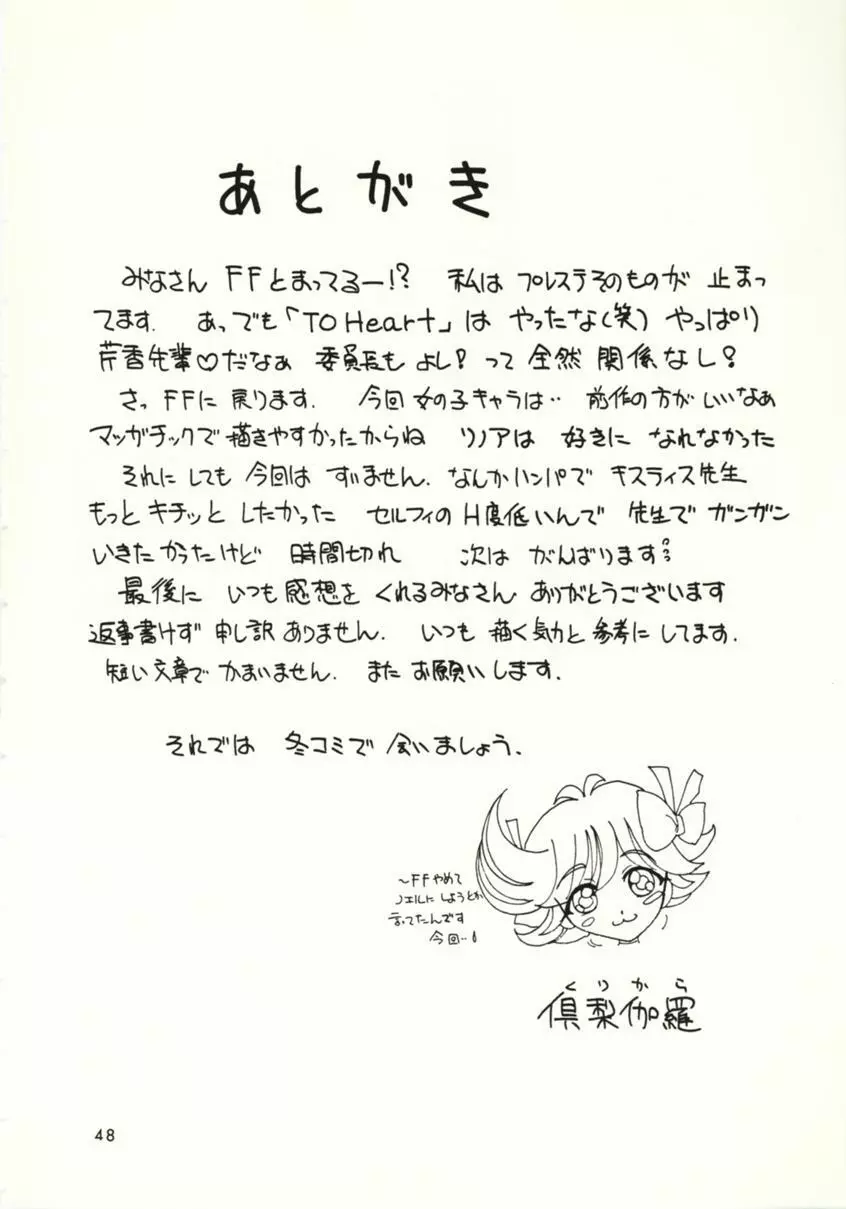 あとがき
みなさん FFとまってるー!? 私は プレステそのものが 止まっ
てます. あっでも「TO Heart」は やったな(笑) やっぱり
芹香先輩♡だなぁ 委員長も よし! って 全然 関係なし!
さっ FFに 戻ります. 今回 女の子キャラは‥ 前作の方が いいなぁ
マンガチックで描きやすかったからね リノアは 好きに なれなかった
それにしても 今回は すいません. なんかハンパで キスティス先生
もっと キチッと したかった セルフィのH度低いんで 先生で ガンガン
いきたかったけど 時間切れ 次は がんばります
最後に いつも 感想を くれるみなさん ありがとうございます
返事書けず 申し訳ありません. いつも 描く気力と 参考に してます.
短い文章で かまいません. また お願いします.
それでは 冬コミで 会いましょう.
〜FFやめて
ノエルに しようとか
言ってたんです
今回‥
くりから
倶梨伽羅
48